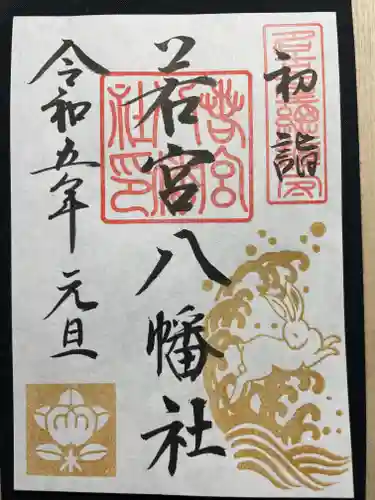 初詣
若宮八幡社
令和五年 元旦
若宮八幡社印